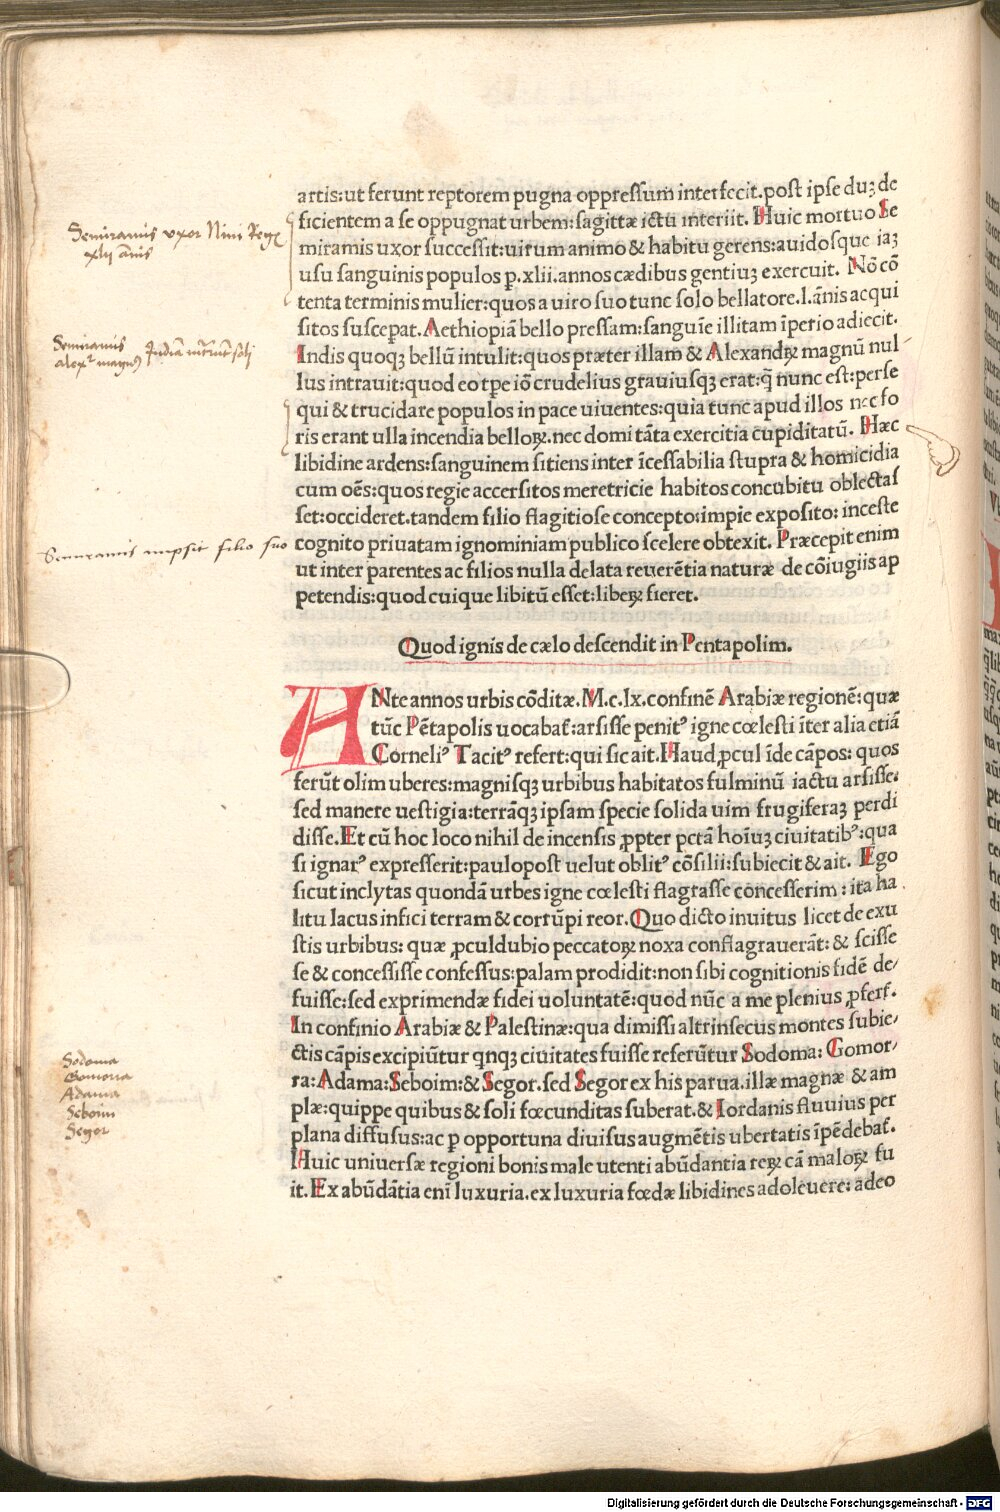 artis:ut ferunt reptorem pugna oppreſſum interfecit.poſt ipſe duꝫ de
ficientem a ſe oppugnat urbem:ſagittæ ictu interiit. Huic mortuo Se
miramis uxor ſucceſſit:uirum animo & habitu gerens:auidoſque iaꝫ
uſu ſanguinis populos ꝑ.xlii.annos cædibus gentiuꝫ exercuit. Nõ cõ
tenta terminis mulier:quos a uiro ſuo tunc ſolo bellatore.l.ãnis acqui
ſitos ſuſcepat. Aethiopiã bello preſſam:ſanguĩe illitam ĩperio adiecit.
Indis quoqꝫ bellũ intulit:quos præter illam & Alexandꝝ magnũ nul-
lus intrauit:quod eo tpe iõ crudelius grauiuſqꝫ erat:q̃ nunc eſt:perſe
qui & trucidare populos in pace uiuentes:quia tunc apud illos nec fo
ris erant ulla incendia belloꝝ.nec domi tãta exercitia cupiditatũ. Hæc
libidine ardens:ſanguinem ſitiens inter ĩceſſabilia ſtupra & homicidia
cum oẽs:quos regie accerſitos meretricie habitos concubitu oblectaſ
ſet:occideret.tandem filio flagitioſe concepto:impie expoſito: inceſte
cognito priuatam ignominiam publico ſcelere obtexit. Præcepit enim
ut inter parentes ac filios nulla delata reuerẽtia naturæ de cõiugiis ap
petendis:quod cuique libitũ eſſet:libeꝝ fieret.
Quod ignis de cælo deſcendit in Pentapolim.
ANte annos urbis cõditæ.M.c.lx.confinẽ Arabiæ regionẽ:quæ
tũc Pẽtapolis uocabat̃:arſiſſe penitꝰ igne cœleſti ĩter alia etiã
Corneliꝰ Tacitꝰ refert:qui ſic ait.Haud ꝓcul ĩde cãpos: quos
ferũt olim uberes:magniſqꝫ urbibus habitatos fulminũ iactu arſiſſe:
ſed manere ueſtigia:terrãqꝫ ipſam ſpecie ſolida uim frugiferaꝫ perdi
diſſe.Et cũ hoc loco nihil de incenſis ꝓpter pctã hoĩuꝫ ciuitatibꝰ:qua
ſi ignarꝰ expreſſerit:paulopoſt uelut oblitꝰ cõſilii:ſubiecit & ait. Ego
ſicut inclytas quondã urbes igne cœleſti flagraſſe conceſſerim : ita ha
litu lacus infici terram & corrũpi reor. Quo dicto inuitus licet de exu
ſtis urbibus: quæ ꝓculdubio peccatoꝝ noxa conflagrauerãt: & ſciſſe
ſe & conceſſiſſe confeſſus:palam prodidit:non ſibi cognitionis fidẽ de/
fuiſſe:ſed exprimendæ fidei uoluntatẽ:quod nũc a me plenius ꝓferſ.
In confinio Arabiæ & Paleſtinæ:qua dimiſſi altrinſecus montes ſubie/
ctis cãpis excipiũtur qnqꝫ ciuitates fuiſſe referũtur Sodoma: Gomor/
ra: Adama:Seboim:& Segor.ſed Segor ex his parua.illæ magnæ & am
plæ:quippe quibus & ſoli fœcunditas ſuberat.& Iordanis fluuius per
plana diffuſus:ac ꝑ opportuna diuiſus augmẽtis ubertatis ĩpẽdebat̃.
Huic uniuerſæ regioni bonis male utenti abũdantia reꝝ cã maloꝝ fu
it.Ex abũdãtia enĩ luxuria.ex luxuria fœdæ libidines adoleuere: adeo
Semiramis vxor Nini Regis
xlij annis
Semiramis
alexr magnus Indiã intrauit soli
Semiramis nupsit filio suo
Sodoma
Gomorra
Adama
Seboim
Segor
Digitalisierung gefördert durch die Deutsche Forschungsgemeinschaft - DFG